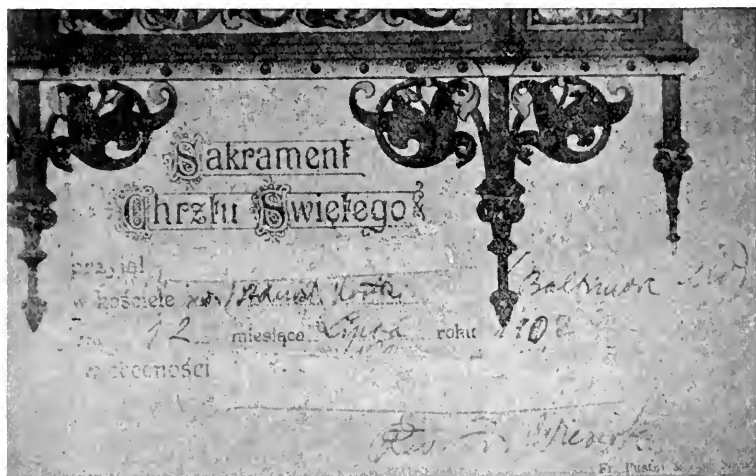 Sakrament
Chrztu Świętego
przyjął
w kościele św. Kostki Baltimore Md
12 miesiąca Lipca roku 1908
w obecności
Rev.
Fr. Pustet &